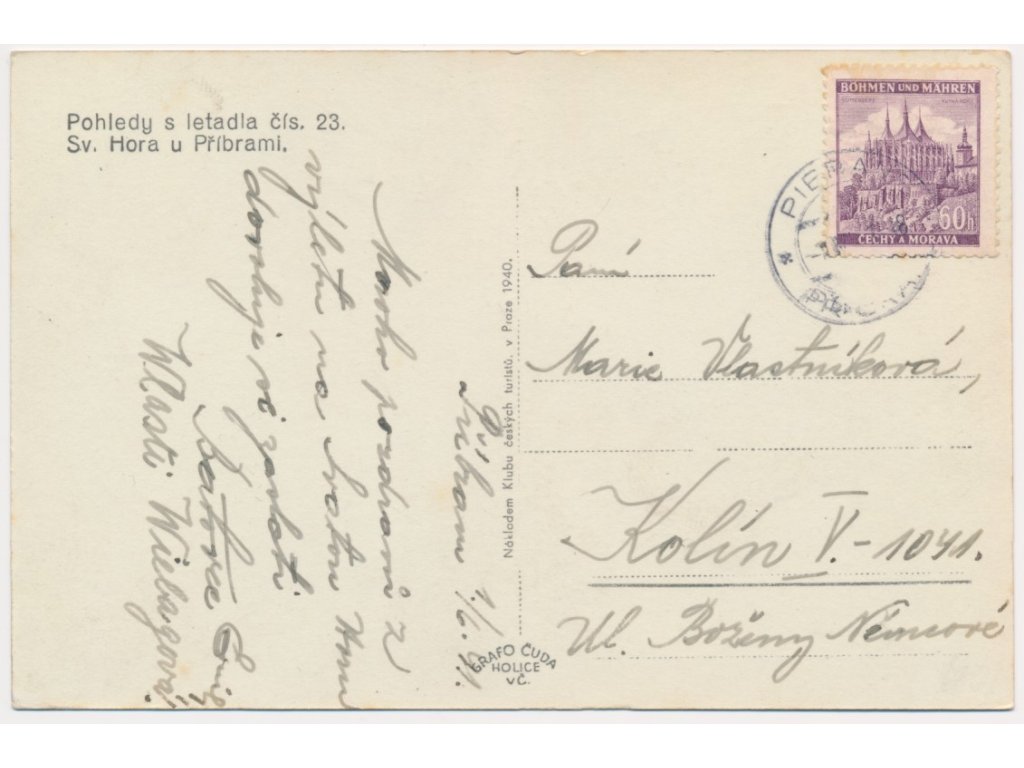 Pohledy s letadla čís. 23.
Sv. Hora u Příbrami.
Mnoho pozdravů z
výletu na Svatou Horu
dovoluje si zaslati
Emil
Vlasti
Příbram 1./6. 41.
Nákladem Klubu českých turistů, v Praze 1940.
GRAFO ČUDA
HOLICE
VČ.
BÖHMEN UND MÄHREN
60h
ČECHY A MORAVA
Paní
Marie Vlastníková,
Kolín V.-1041.
Ul. Boženy Němcové